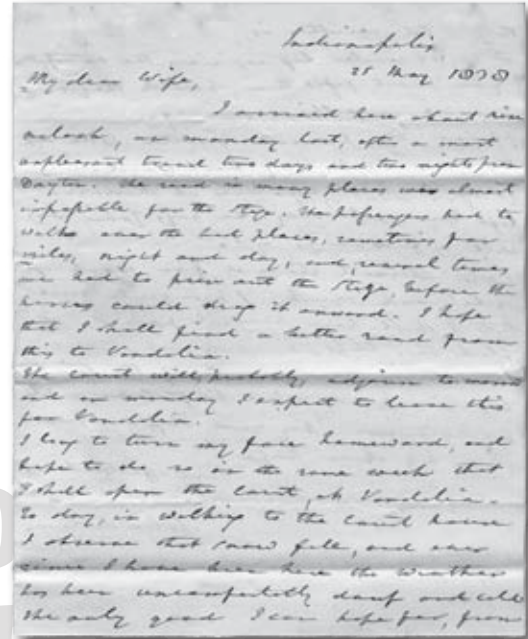 Indianapolis
25 May 1838
My dear Wife,
I arrived here about nine
oclock, on monday last, after a most
unpleasant travel two days and two nights from
Dayton. The road in many places was almost
impassable for the stage. The passengers had to
walk over the bad places, sometimes for
miles, night and day, and, several times
we had to pry out the stage, before the
horses could drag it onward. I hope
that I shall find a better road from
this to Vandalia.
The court will, probably adjourn to morrow
and on monday I expect to leave this
for Vandalia.
I long to turn my face homeward, and
hope to do so in the same week that
I shall open the court, at Vandalia.
To day, in walking to the court house
I observe that snow fell, and ever
since I have been here the weather
has been uncomfortably damp and cold
the only good I can hope for, from